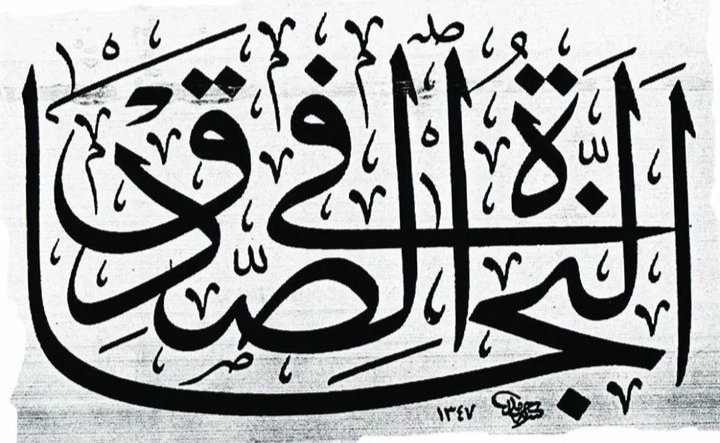 النَّجَاةُ فِي الصِّدْقِ
١٣٤٧